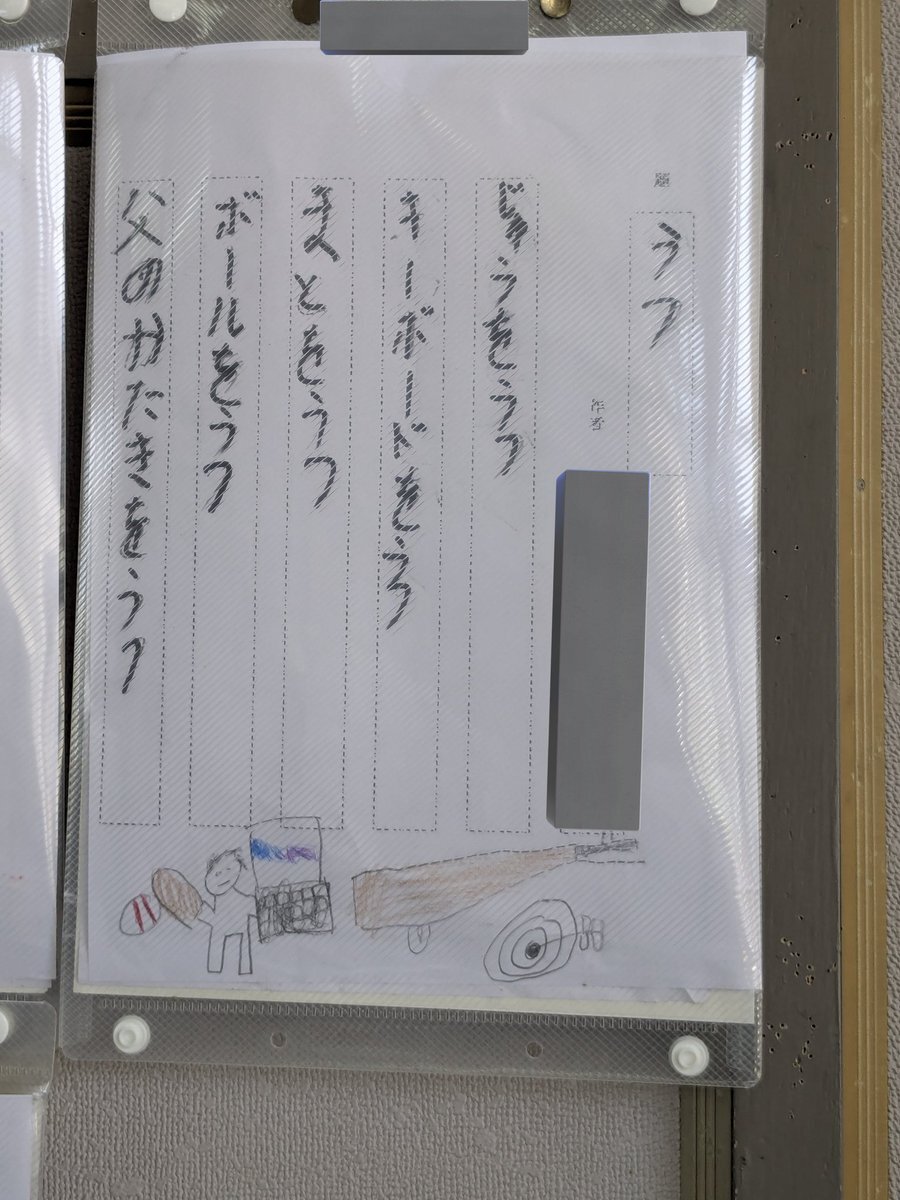 題
うつ
名前
じゅうをうつ
キーボードをうつ
まとをうつ
ボールをうつ
父のかたきをうつ